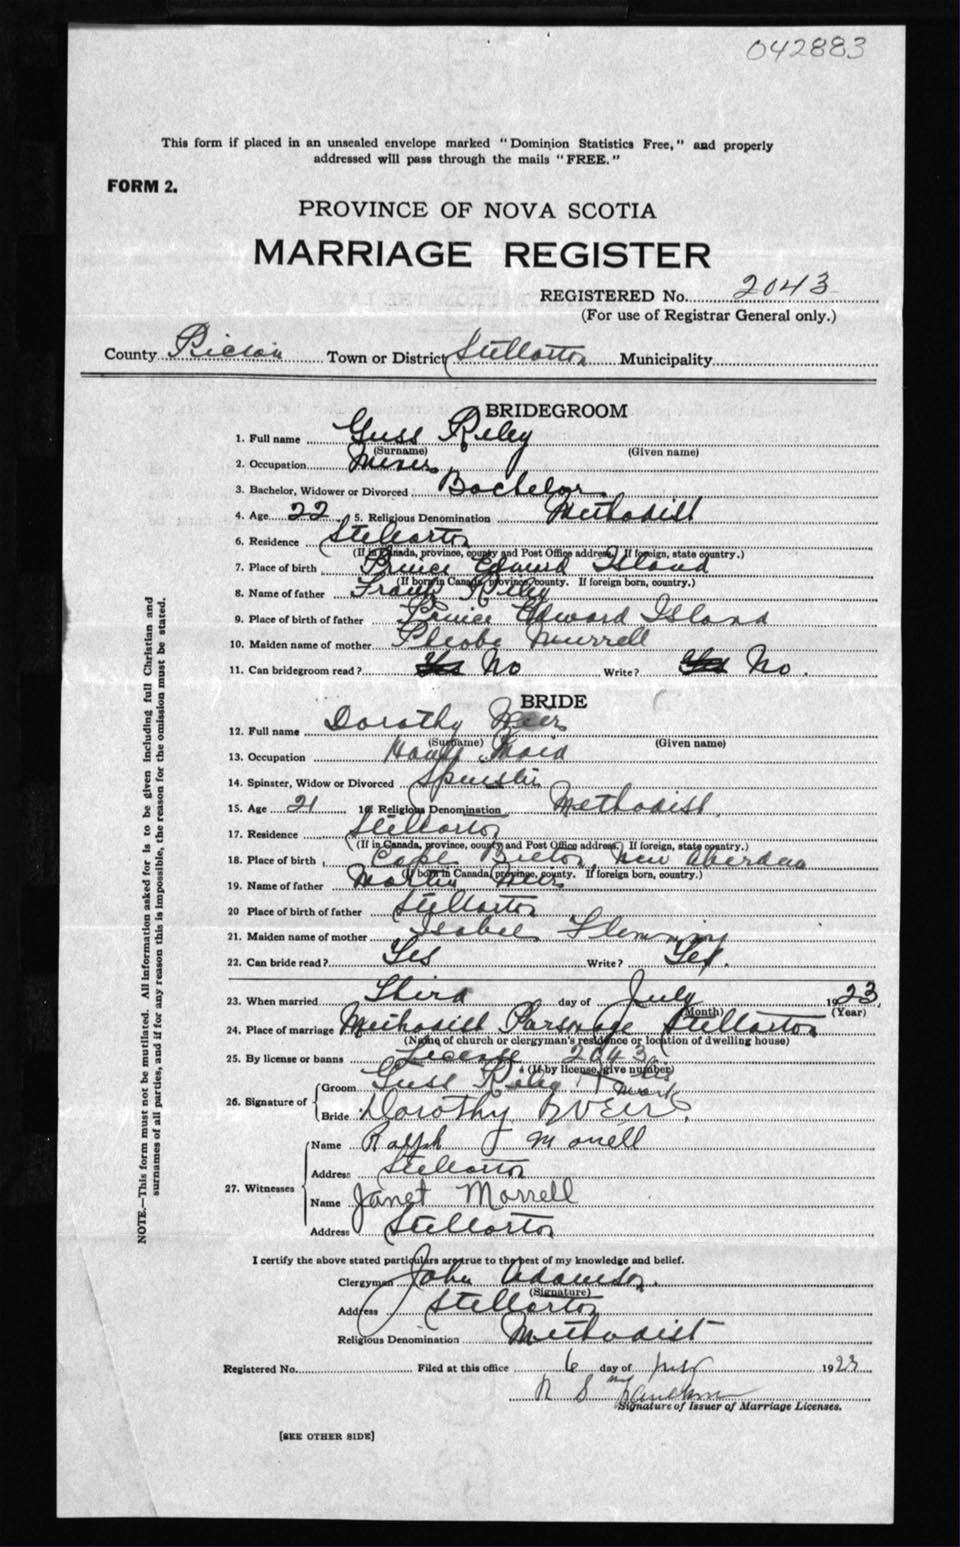 042883
This form if placed in an unsealed envelope marked "Dominion Statistics Free," and properly
addressed will pass through the mails "FREE."
FORM 2.
PROVINCE OF NOVA SCOTIA
MARRIAGE REGISTER
REGISTERED No. 2043
(For use of Registrar General only.)
County Pictou Town or District Stellarton Municipality
BRIDEGROOM
1. Full name Guss Riley
(Surname) (Given name)
2. Occupation Miner
3. Bachelor, Widower or Divorced Bachelor
4. Age 22 5. Religious Denomination Methodist
6. Residence Stellarton
(If in Canada, province, county and Post Office address. If foreign, state country.)
7. Place of birth Prince Edward Island
(If born in Canada, province, county. If foreign born, country.)
8. Name of father Frank Riley
9. Place of birth of father Prince Edward Island
10. Maiden name of mother Pheobe Murrell
11. Can bridegroom read? Yes No Write? Yes No.
BRIDE
12. Full name Dorothy
(Surname) (Given name)
13. Occupation House Maid
14. Spinster, Widow or Divorced Spinster
15. Age 21 16 Religious Denomination Methodist
17. Residence Stellarton
(If in Canada, province, county and Post Office address.) If foreign, state country.)
18. Place of birth Cape Breton, New Aberdeen
(If born in Canada, province, county. If foreign born, country.)
19. Name of father Martin
20 Place of birth of father Stellarton
21. Maiden name of mother Isabel Flemming
22. Can bride read? Yes Write? Yes.
23. When married Third day of July 1923
(Month) (Year)
24. Place of marriage Methodist Parsonage Stellarton
(Name of church or clergyman's residence or location of dwelling house)
25. By license or banns License 2043
(If by license, give number)
26. Signature of Groom Guss Riley X his mark
Bride Dorothy
27. Witnesses Name Ralph Morrell
Address Stellarton
Name Janet Morrell
Address Stellarton
I certify the above stated particulars are true to the best of my knowledge and belief.
Clergyman John Adamson.
(Signature)
Address Stellarton
Religious Denomination Methodist
Registered No. Filed at this office 6 day of July 1923
Signature of Issuer of Marriage Licenses.
[SEE OTHER SIDE]
NOTE.—This form must not be mutilated. All information asked for is to be given including full Christian and
surnames of all parties, and if for any reason this is impossible, the reason for the omission must be stated.